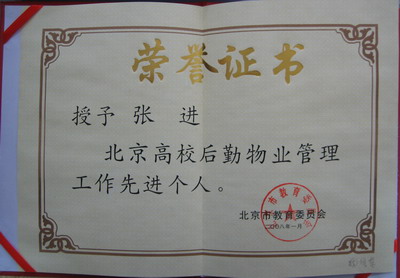 荣誉证书
授予 张 进
北京高校后勤物业管理
工作先进个人。
北京市教育委员会
二〇〇八年一月